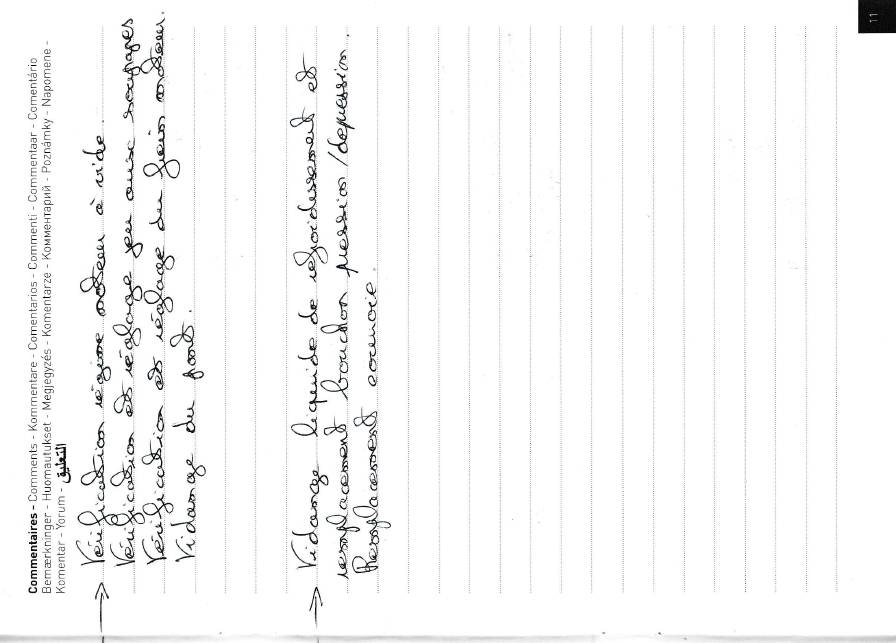 Commentaires - Comments - Kommentare - Comentarios - Commenti - Commentaar - Comentário
Bemærkninger - Huomautukset - Megjegyzés - Komentarze - Комментарий - Poznámky - Napomene -
Komentar - Yorum - التعليق
→ Vérification régime moteur à vide.
Vérification et réglage jeu aux soupapes
Vérification et réglage du frein moteur.
Vidange du pont.
→ Vidange liquide de refroidissement et
remplacement bouchon pression/depression.
Remplacement courroie.
11